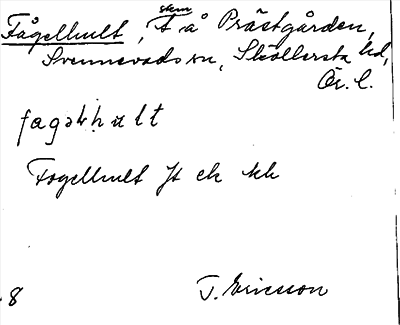 Fågelhult, skm t å Prästgården,
Svennevads sn, Sköllersta hd,
Ör. l.
Fogelhult Jt ek kk
T. Ericsson
8